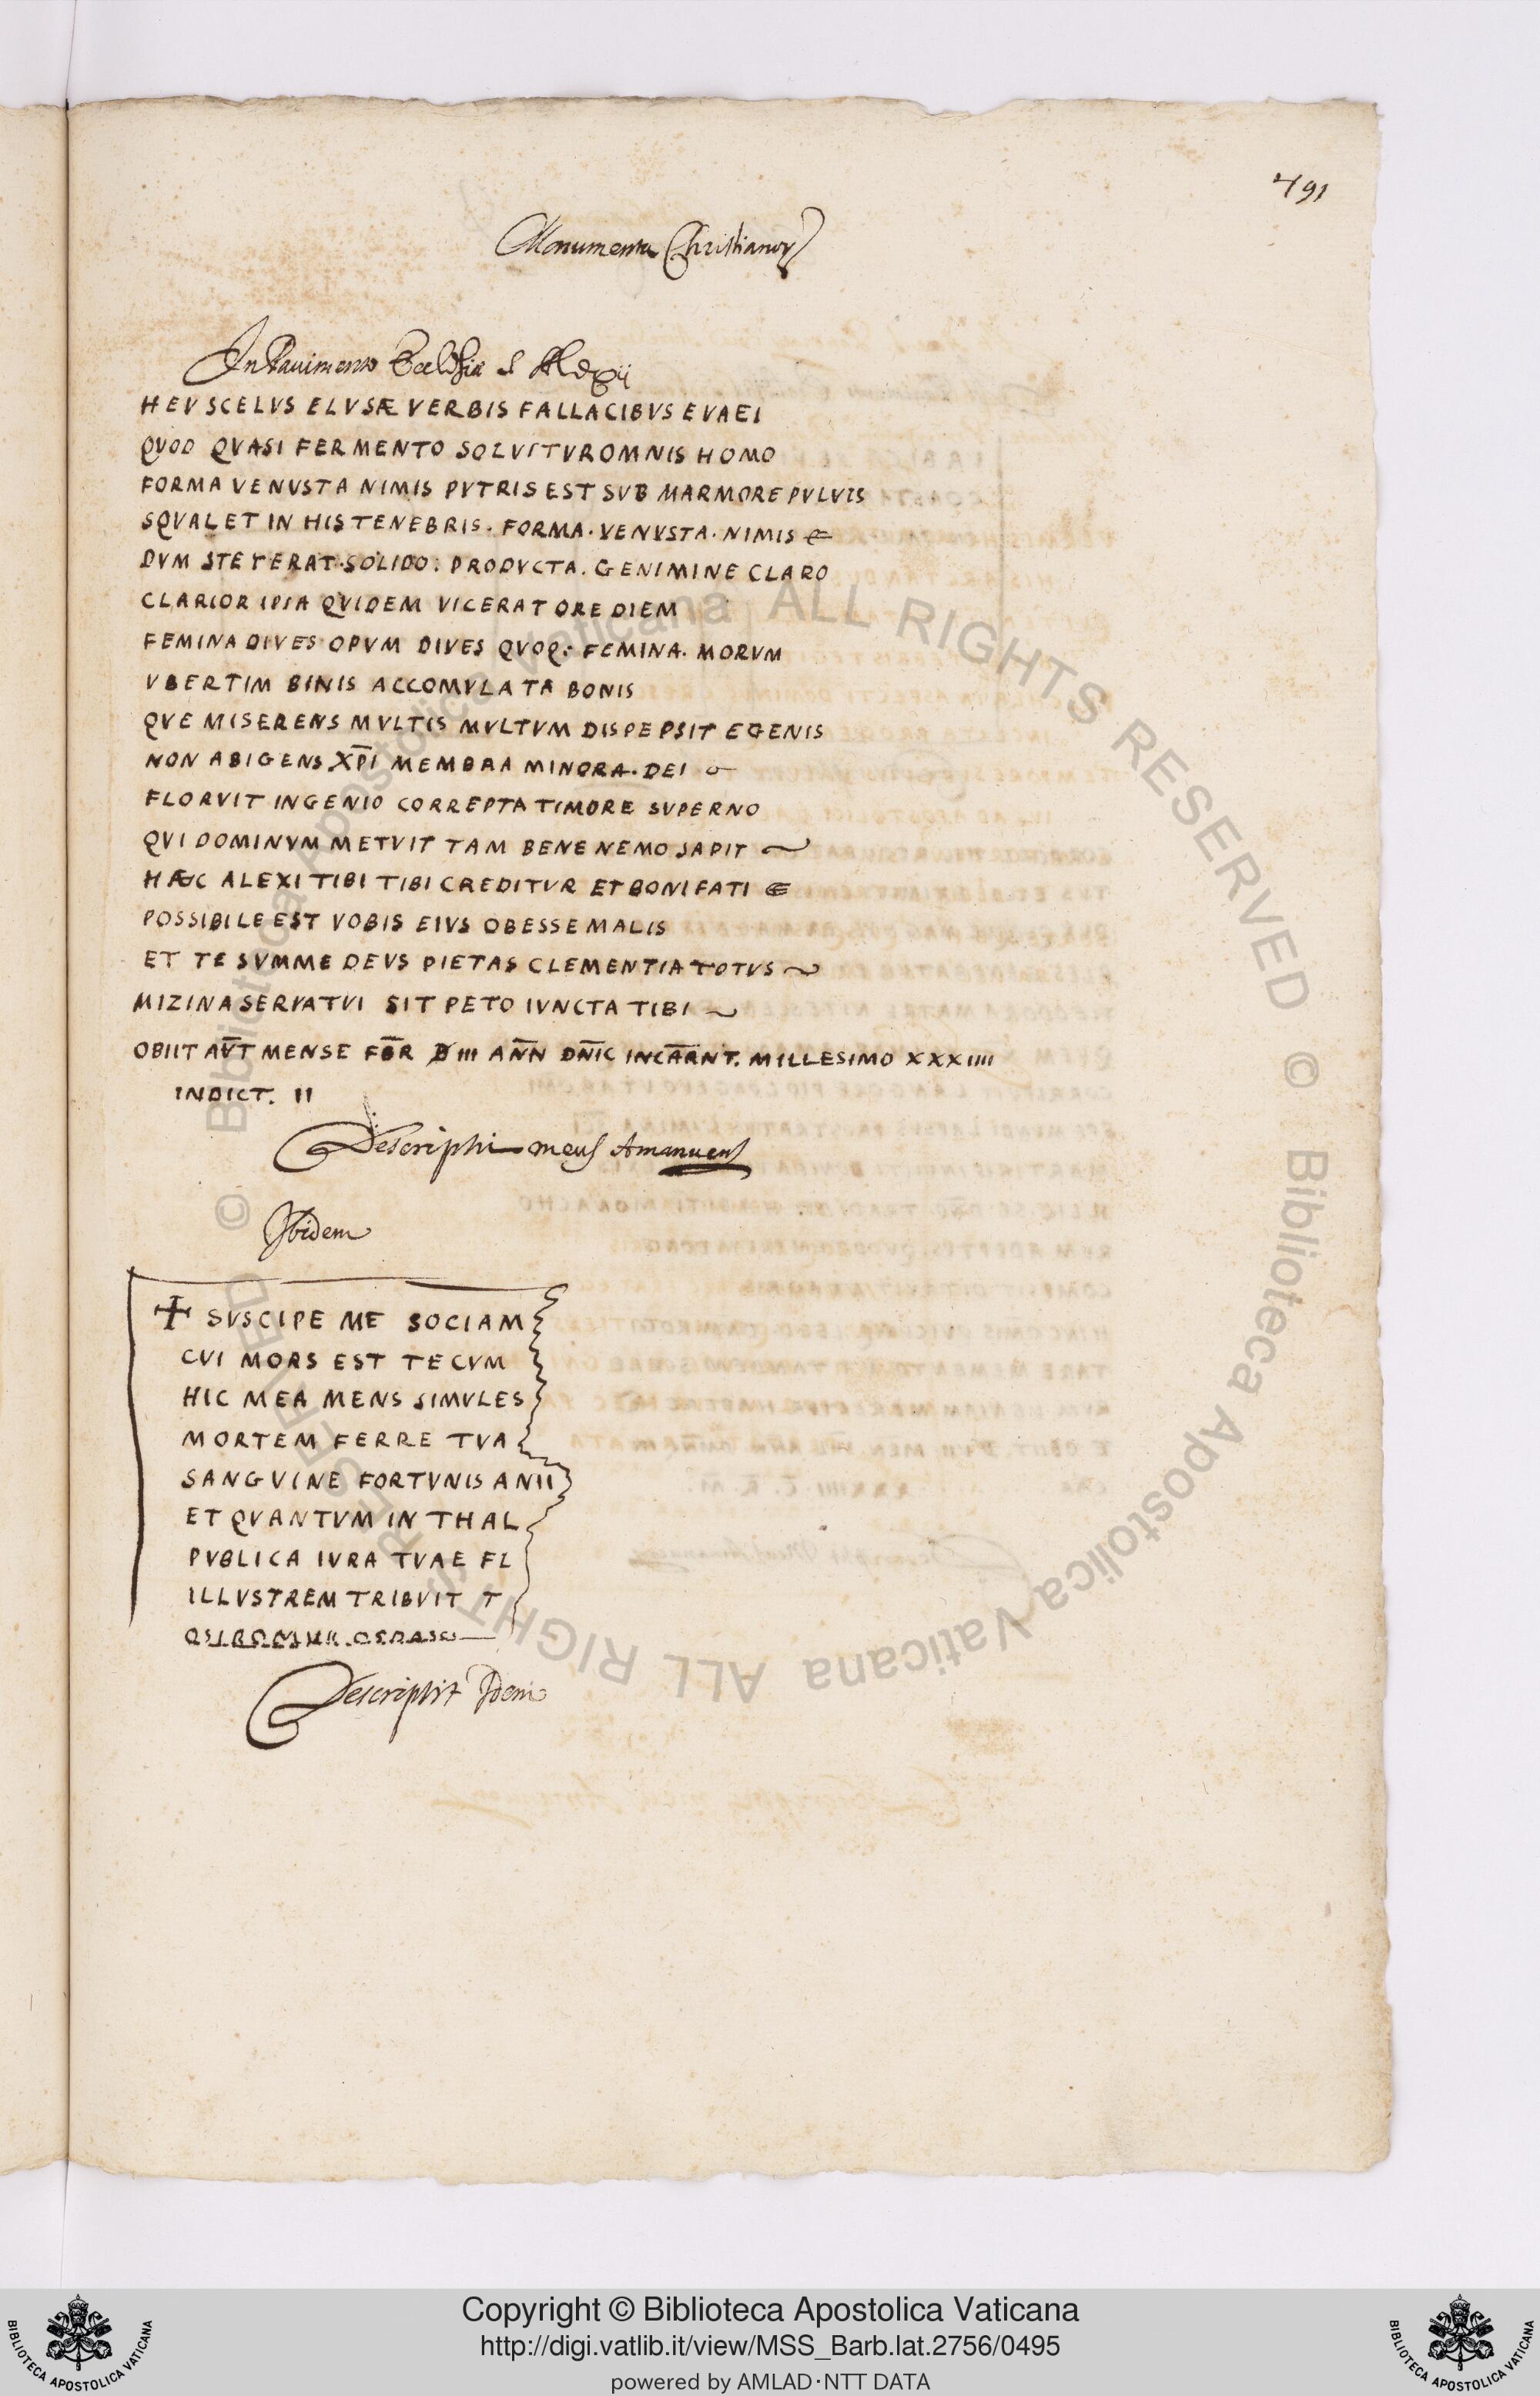 491
Monumenta Christianor
In Pavimento Ecclesiæ S Alexii
HEV SCELVS ELVSÆ VERBIS FALLACIBVS EVAEI
QVOD QVASI FERMENTO SOLVITVR OMNIS HOMO
FORMA VENVSTA NIMIS PVTRIS EST SVB MARMORE PVLVIS
SQVALET IN HIS TENEBRIS. FORMA. VENVSTA. NIMIS
DVM STETERAT. SOLIDO: PRODVCTA. GENIMINE CLARO
CLARIOR IPSA QVIDEM VICERAT ORE DIEM
FEMINA DIVES OPVM DIVES QVOQ: FEMINA. MORVM
VBERTIM BINIS ACCOMVLATA BONIS
QVE MISERENS MVLTIS MVLTVM DISPEPSIT EGENIS
NON ABIGENS XP̅I MEMBRA MINORA. DEI
FLORVIT INGENIO CORREPTA TIMORE SVPERNO
QVI DOMINVM METVIT TAM BENE NEMO SAPIT
HÆC ALEXI TIBI TIBI CREDITVR ET BONIFATI
POSSIBILE EST VOBIS EIVS OBESSE MALIS
ET TE SVMME DEVS PIETAS CLEMENTIA TOTVS
MIZINA SERVATVI SIT PETO IVNCTA TIBI
OBIIT AV̅T MENSE FB̅R D III AN̅N DN̅IC INCA̅RNT. MILLESIMO XXXIIII
INDICT. II
Descripsit meus Amanuens
Ibidem
✝ SVSCIPE ME SOCIAM
CVI MORS EST TECVM
HIC MEA MENS SIMVLES
MORTEM FERRE TVA
SANGVINE FORTVNIS ANII
ET QVANTVM IN THAL
PVBLICA IVRA TVAE FL
ILLVSTREM TRIBVIT T
Descripsit Idem
© Biblioteca Apostolica Vaticana ALL RIGHTS RESERVED © Biblioteca Apostolica Vaticana ALL RIGHTS RESERVED
Copyright © Biblioteca Apostolica Vaticana
http://digi.vatlib.it/view/MSS_Barb.lat.2756/0495
powered by AMLAD·NTT DATA
BIBLIOTECA APOSTOLICA VATICANA
BIBLIOTECA APOSTOLICA VATICANA